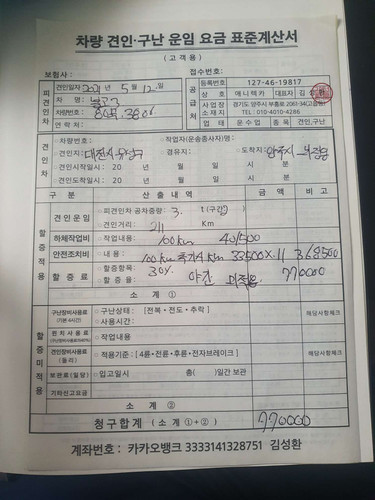 차량 견인·구난 운임 요금 표준계산서
(고객용)
보험사: 접수번호:
피견인차 견인일자 2021년 5월 12일
차 명
차량번호
연락처:
공급처 등록번호 127-46-19817
상 호 애니렉카 대표자 김
사업장소재지 경기도 양주시 부흥로
TEL : 010-4010-4286
업 태 운수업 종목 견인,구난
견인차 차량번호: 작업자(운송종사자)명:
견인지: 대전시 유성구 경유지: 도착지: 양주시
견인시작일시 : 20 년 월 일 시 분
견인도착일시 : 20 년 월 일 시 분
구 분 산 출 내 역 금 액 비 고
할증적용
견인운임 ○피견인차 공차중량 3. t(구간)
○견인거리 211 Km
하체작업비 ○작업내용: 100km
안전조치비 ○작업내용: 100km 33500 X 11 368500
할 증 료 ○할증항목: 30% 야간
○할 증 율: 770000
소 계 ①
할증미적용
구난장비사용료 (기본·4시간) ○구난상태: [전복·전도·추락] 해당사항체크
○사용시간:
○작업내용
견인장비사용료 (돌리) ○적용기준 : [4륜·전륜·후륜·전자브레이크] 해당사항체크
보관료(일당) ○입고일시 총( )일간 보관
기타신고요금
소 계 ②
청구합계 (소계 ①+②) 770000
계좌번호 : 카카오뱅크 3333141328751 김성환